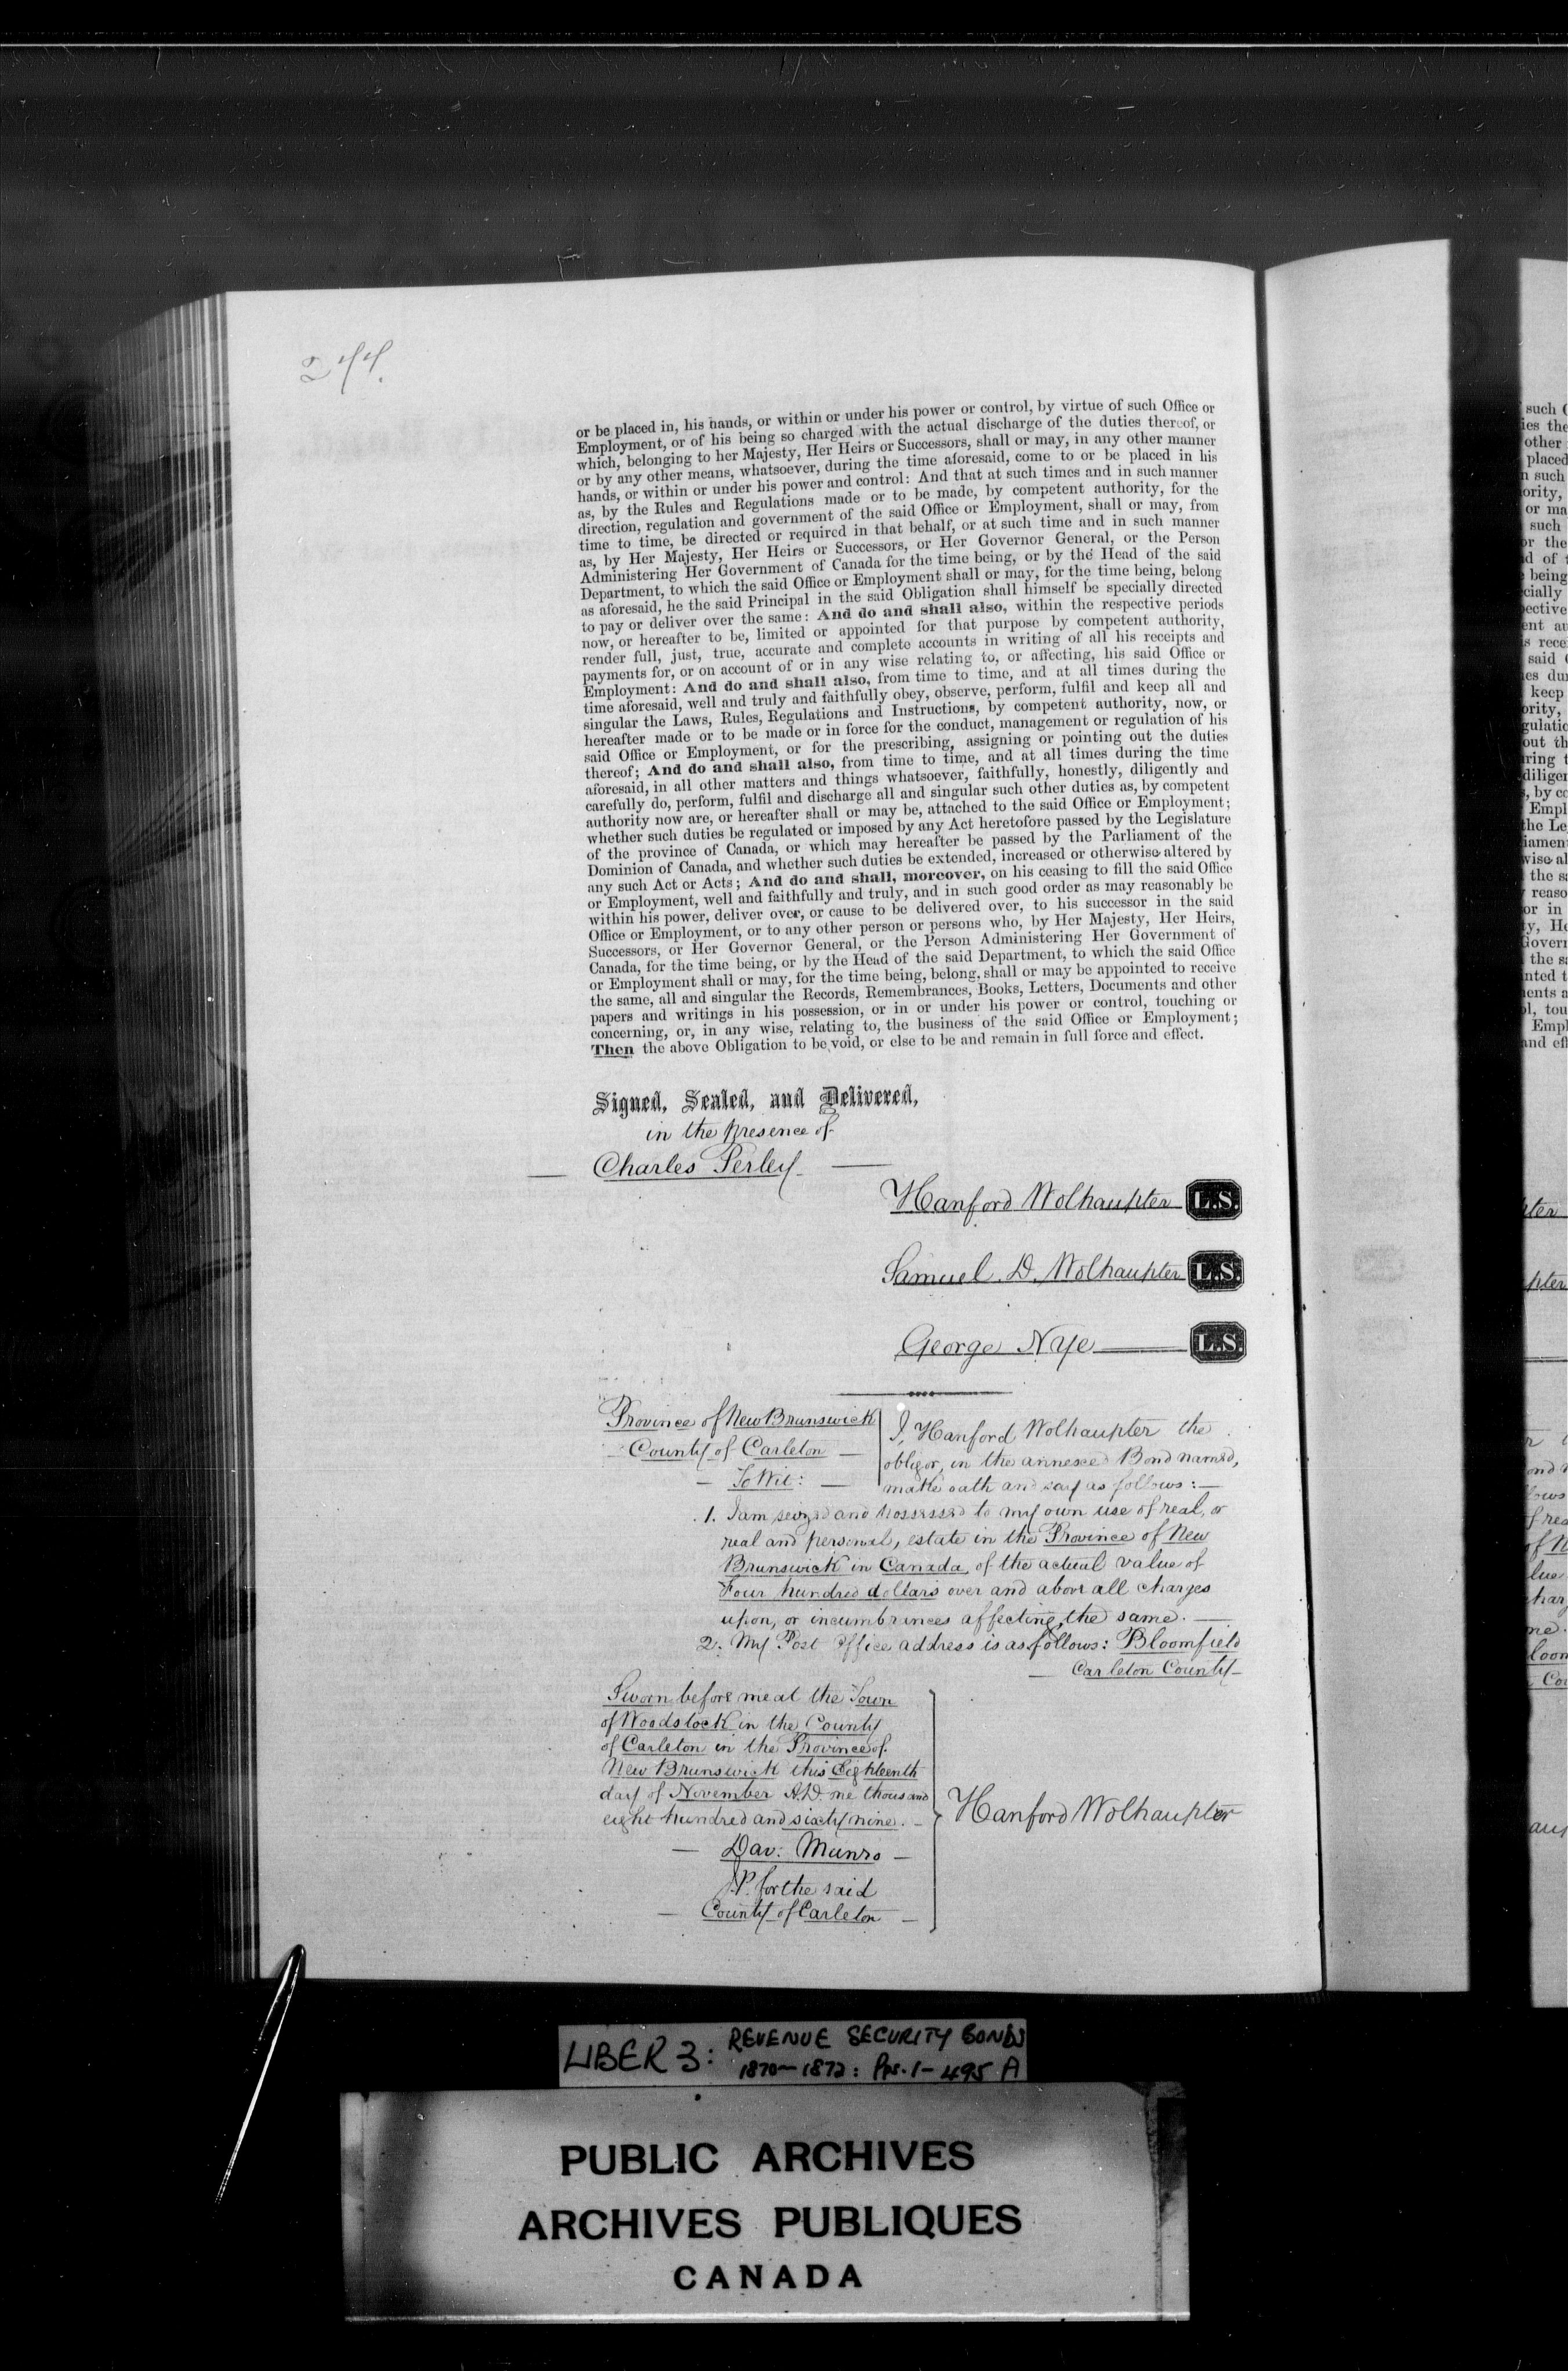 244.
or be placed in, his hands, or within or under his power or control, by virtue of such Office or
Employment, or of his being so charged with the actual discharge of the duties thereof, or
which, belonging to her Majesty, Her Heirs or Successors, shall or may, in any other manner
or by any other means, whatsoever, during the time aforesaid, come to or be placed in his
hands, or within or under his power and control: And that at such times and in such manner
as, by the Rules and Regulations made or to be made, by competent authority, for the
direction, regulation and government of the said Office or Employment, shall or may, from
time to time, be directed or required in that behalf, or at such time and in such manner
as, by Her Majesty, Her Heirs or Successors, or Her Governor General, or the Person
Administering Her Government of Canada for the time being, or by the Head of the said
Department, to which the said Office or Employment shall or may, for the time being, belong
as aforesaid, he the said Principal in the said Obligation shall himself be specially directed
to pay or deliver over the same: And do and shall also, within the respective periods
now, or hereafter to be, limited or appointed for that purpose by competent authority,
render full, just, true, accurate and complete accounts in writing of all his receipts and
payments for, or on account of or in any wise relating to, or affecting, his said Office or
Employment: And do and shall also, from time to time, and at all times during the
time aforesaid, well and truly and faithfully obey, observe, perform, fulfil and keep all and
singular the Laws, Rules, Regulations and Instructions, by competent authority, now, or
hereafter made or to be made or in force for the conduct, management or regulation of his
said Office or Employment, or for the prescribing, assigning or pointing out the duties
thereof; And do and shall also, from time to time, and at all times during the time
aforesaid, in all other matters and things whatsoever, faithfully, honestly, diligently and
carefully do, perform, fulfil and discharge all and singular such other duties as, by competent
authority now are, or hereafter shall or may be, attached to the said Office or Employment;
whether such duties be regulated or imposed by any Act heretofore passed by the Legislature
of the province of Canada, or which may hereafter be passed by the Parliament of the
Dominion of Canada, and whether such duties be extended, increased or otherwise altered by
any such Act or Acts; And do and shall, moreover, on his ceasing to fill the said Office
or Employment, well and faithfully and truly, and in such good order as may reasonably be
within his power, deliver over, or cause to be delivered over, to his successor in the said
Office or Employment, or to any other person or persons who, by Her Majesty, Her Heirs,
Successors, or Her Governor General, or the Person Administering Her Government of
Canada, for the time being, or by the Head of the said Department, to which the said Office
or Employment shall or may, for the time being, belong, shall or may be appointed to receive
the same, all and singular the Records, Remembrances, Books, Letters, Documents and other
papers and writings in his possession, or in or under his power or control, touching or
concerning, or, in any wise, relating to, the business of the said Office or Employment;
Then the above Obligation to be void, or else to be and remain in full force and effect.
Signed, Sealed, and Delivered,
in the presence of
— Charles Perley —
Hanford Wolhaupter L.S.
Samuel. D. Wolhaupter L.S.
George Nye L.S.
Province of New Brunswick
County of Carleton —
— To Wit: —
I, Hanford Wolhaupter the
obligor, in the annexed Bond named,
make oath and say as follows: —
1. I am seized and possessed to my own use of real, or
real and personal, estate in the Province of New
Brunswick in Canada, of the actual value of
Four hundred dollars over and above all charges
upon, or incumbrances affecting the same. —
2. My Post Office address is as follows: Bloomfield
— Carleton County —
Sworn before me at the Town
of Woodstock in the County
of Carleton in the Province of
New Brunswick this Eighteenth
day of November A.D. one thousand
eight hundred and sixty nine. —
Hanford Wolhaupter
— Dav: Munro —
J.P. for the said
— County of Carleton —
LIBER 3: REVENUE SECURITY BONDS
1870–1872: Pps. 1–495 A
PUBLIC ARCHIVES
ARCHIVES PUBLIQUES
CANADA